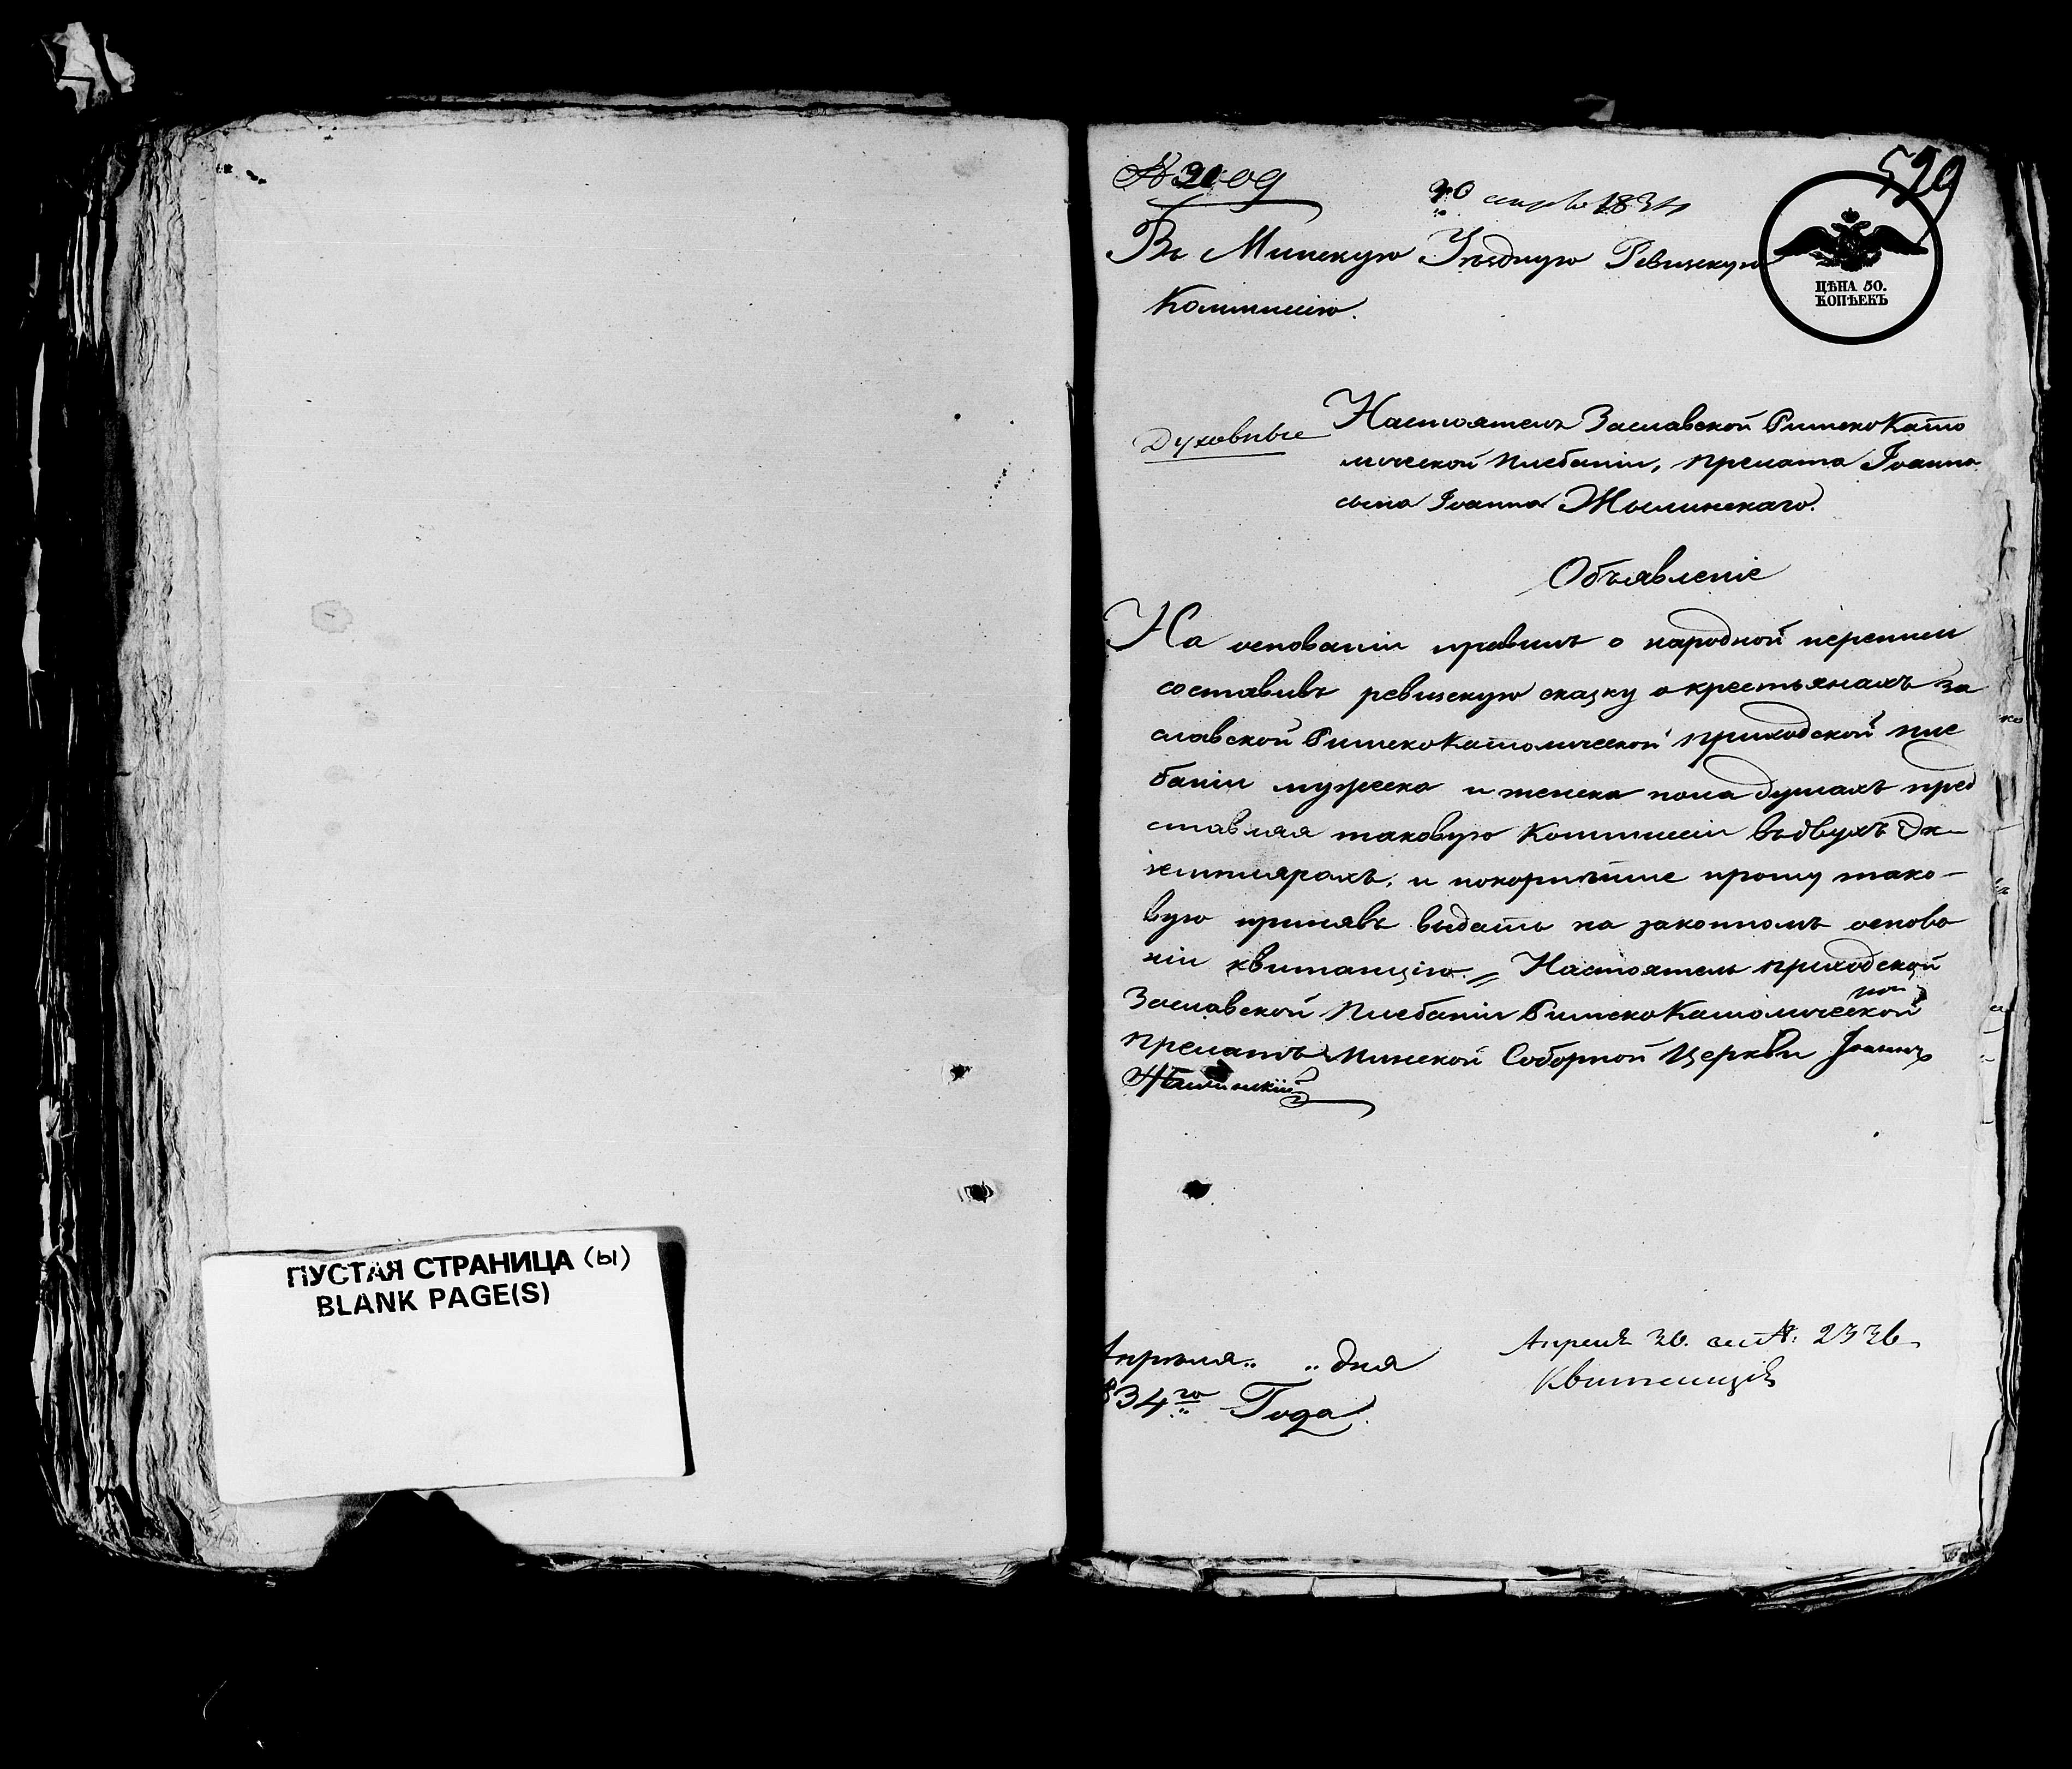 ПУСТАЯ СТРАНИЦА (Ы)
BLANK PAGE(S)
529
30 апрѣля 1834
ЦѢНА 50.
КОПѢЕКЪ
Въ Минскую Уѣздную Ревизскую
Коммисію.
Духовные
Настоятеля Заславской Римско Като
лической плебаніи, прелата Іоанна
сына Іоанна Жылинскаго.
Объявленіе
На основаніи правилъ о народной переписи
составивъ ревизскую сказку о крестьянахъ За
славской Римско Католической приходской пле
баніи мужеска и женска пола душахъ пред
ставляя таковую Коммисіи въ двухъ Эк-
земплярахъ, и покорнѣйше прошу тако-
вую принявъ выдать на законномъ основа
ніи квитанцію. = Настоятель приходской
Заславской Плебаніи Римско Католической
прелатъ Минской Соборной Церкви Іоаннъ
Жылинскій
Апрѣля.. .. дня
834го Года.
Апреля 30. №. 2336
Квитанція